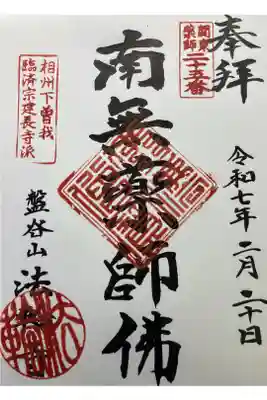 奉拝
関東
薬師
二十五番
南無薬師佛
令和七年二月二十日
相州下曽我
臨済宗建長寺派